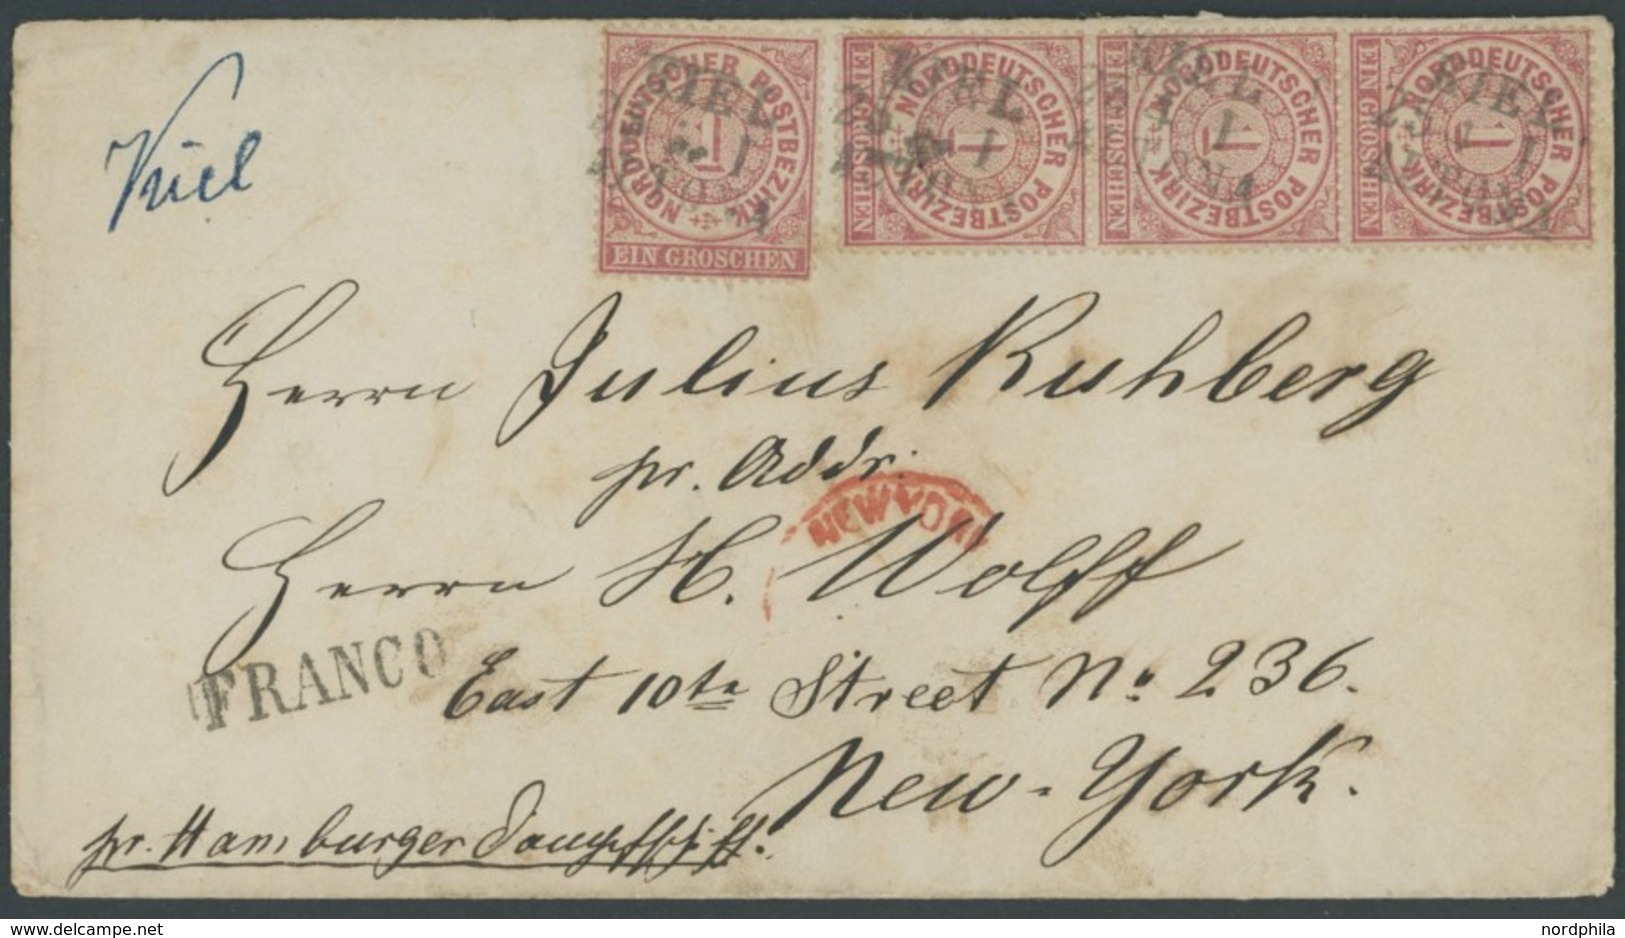 Kiel
NORDDEUTSCHER POSTBEZIRK
1
EIN GROSCHEN
NORDDEUTSCHER POSTBEZIRK
1
EIN GROSCHEN
NORDDEUTSCHER POSTBEZIRK
1
EIN GROSCHEN
NORDDEUTSCHER POSTBEZIRK
1
EIN GROSCHEN
KIEL
KIEL
KIEL
KIEL
Herrn Julius Ruhberg
pr. Addr.
NEW YORK
Herrn H. Wolff
FRANCO
East 10te Street No. 236.
New-York.
pr. Hamburger Dampfschiff.
nordphila
www.delcampe.net